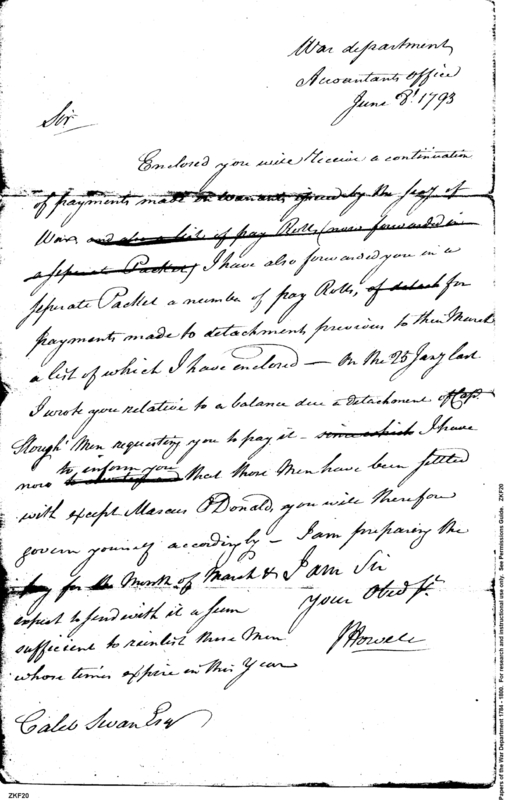 War department
Accountants office
June 8t 1793
Sir
Enclosed you will receive a continuation
of payments made in warrants issued by the Secy of
War, and also a list of pay Rolls (now forwarded in
a seperate Packet) I have also forwarded you in a
seperate Packet a number of pay Rolls, of detach for
payments made to detachments previous to their March
a list of which I have enclosed — On the 25 Jany last
I wrote you relative to a balance due a detachment of Capt.
Slough' Men requesting you to pay it — since which I have
to, inform you
now that those Men have been settled
with except Marcus O'Donald, you will therefore
govern yourself accordingly — I am preparing the
pay for the Month of March & 
expect to send with it a sum
sufficient to reinlist those Men
whose times expire in this Year
I am Sir
your Obed St.
J Howell
Caleb Swan Esq
ZKF20
Papers of the War Department 1784 - 1800. For research and instructional use only. See Permissions Guide. ZKF20